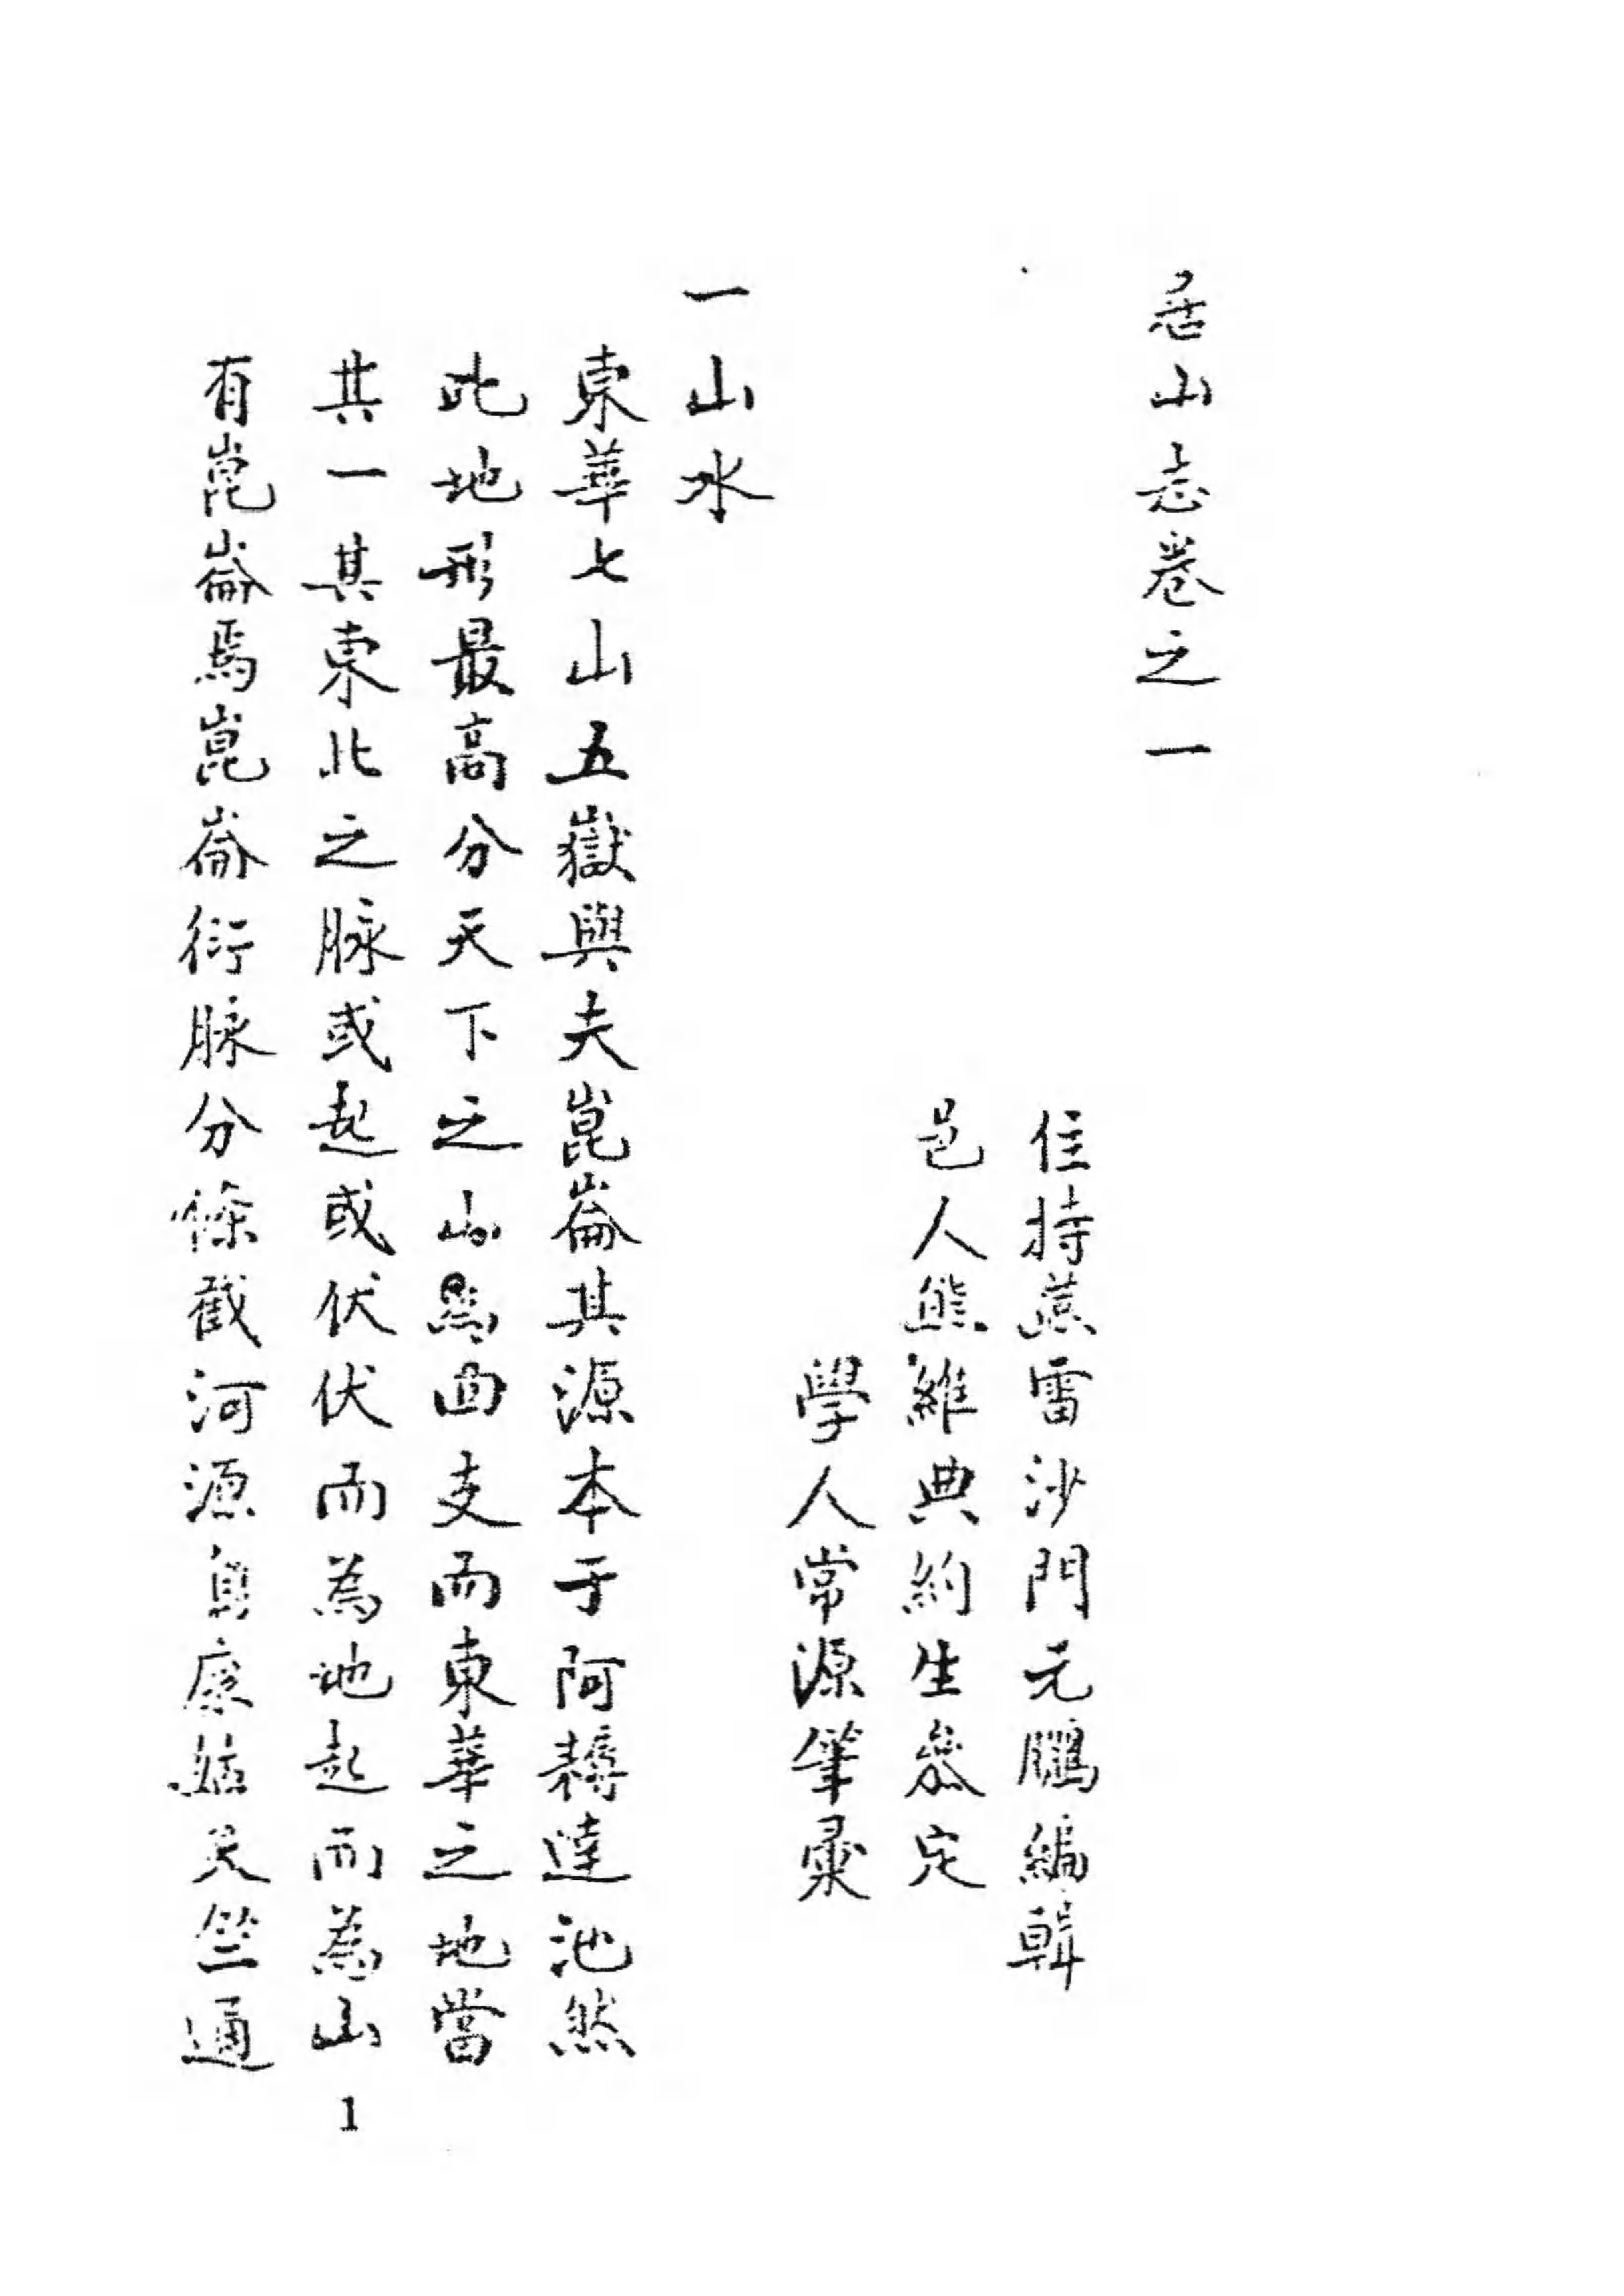 居山志卷之一
住持燕雷沙門元鵬編輯
邑人熊維典約生叅定
學人常源筆彔
一山水
東華七山五嶽與夫崑崙其源本于阿耨達池然
此地形最高分天下之山為四支而東華之地當
其一其東北之脉或起或伏伏而為地起而為山
有崑崙焉崑崙衍脉分條截河源負天竺通
1